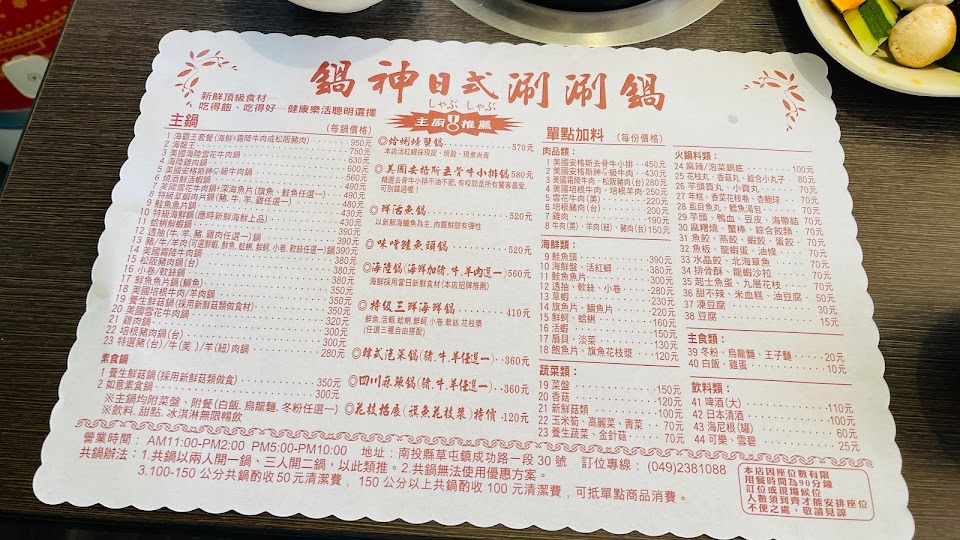 鍋神日式涮涮鍋
しゃぶ しゃぶ
新鮮頂級食材
吃得飽、吃得好 健康樂活聰明選擇
主廚 推薦
主鍋 (每鍋價格)
1 海霸王套餐(海鮮+霜降牛肉或松阪豬肉) 950元
2 海龍王 750元
3 美國海陸雪花牛肉鍋 630元
4 海陸雞肉鍋 530元
5 美國安格斯新神心級牛肉鍋 600元
6 燒酒鮮活蝦鍋 560元
7 美國雪花牛肉鍋+深海魚片(旗魚、鮭魚任選一) 490元
8 特級草蝦肉片鍋(豬、牛、羊、雞任選一) 480元
9 鮭魚魚片鍋 430元
10 特級海鮮鍋(應時新鮮海鮮上品) 430元
11 蛤蜊鮮蝦鍋 490元
12 透抽(牛、羊、豬、雞肉任選一)鍋 390元
13 豬/牛/羊肉(可選鮮蝦、鮮魚、蛤蜊、鮮蚵、小卷、軟絲任選一)鍋 390元
14 美國霜降牛肉鍋 380元
15 松阪豬肉鍋(台) 380元
16 小卷/軟絲鍋 380元
17 鮮魚魚片鍋(鯛魚) 350元
18 美國培根牛肉/羊肉鍋 350元
19 養生鮮菇鍋(採用新鮮菇類做食材) 350元
20 美國雪花牛肉鍋(美) 340元
21 雞肉鍋 320元
22 培根豬肉鍋(台) 300元
23 特選豬(台)/牛(美)/羊(紐)肉鍋 280元
素食鍋
1 養生鮮菇鍋(採用新鮮菇類做食) 350元
2 如意素食鍋 300元
※主鍋均附菜盤、附餐(白飯、烏龍麵、冬粉任選一)
※飲料、甜點、冰淇淋無限暢飲
◎蛤蜊螃蟹鍋 570元
本店活紅蟳採現捉、現殺、現煮尚青
◎美國安格斯去骨牛小排鍋 580元
精選去骨牛小排不油不肥,有咬勁是所有饕客最愛,可別錯過喔!
◎鮮活魚鍋 520元
以新鮮海鱺魚為主,肉質鮮甜有彈性
◎味噌鮭魚頭鍋 520元
◎海陸鍋(海鮮加豬、牛、羊肉選一) 560元
海鮮採用當日新鮮食材(本店招牌推薦)
◎特級三鮮海鮮鍋 410元
鮮魚,活蝦,蛤蜊,鮮蚵,小卷,軟絲,花枝漿
(任選三種自由搭配)
◎韓式泡菜鍋(豬、牛、羊任選一) 360元
◎四川麻辣鍋(豬、牛、羊任選一) 360元
◎花枝招展(旗魚花枝漿)特價 120元
單點加料 (每份價格)
肉品類:
1 美國安格斯去骨牛小排 450元
2 美國安格斯新神心級牛肉 450元
3 美國霜降牛肉、松阪豬肉(台) 280元
4 美國培根牛肉、培根羊肉 250元
5 雪花牛肉(美) 220元
6 培根豬肉(台) 200元
7 雞肉 190元
8 牛肉(美)、羊肉(紐)、豬肉(台) 150元
海鮮類:
9 鮭魚頭 390元
10 海鮮盤、活紅蟳 380元
11 鮭魚片 380元
12 透抽、軟絲、小卷 280元
13 草蝦 230元
14 旗魚片、鯛魚片 220元
15 鮮蚵、蛤蜊 190元
16 活蝦 150元
17 扇貝、淡菜 130元
18 鮑魚片、旗魚花枝漿 120元
蔬菜類:
19 菜盤 150元
20 香菇 120元
21 新鮮菇類 100元
22 玉米筍、高麗菜、青菜 70元
23 養生蔬菜、金針菇 70元
火鍋料類:
24 麻辣/泡菜鍋底 100元
25 花枝丸、香菇丸、綜合小丸子 80元
26 芋頭貢丸、小貢丸 70元
27 年糕、香菜花枝卷、杏鮑球 70元
28 虱目魚丸、鱈魚湯包 70元
29 芋頭、鴨血、豆皮、海帶結 70元
30 麻糬燒、蟹棒、綜合餃類 70元
31 魚餃、燕餃、蝦餃、蛋餃 70元
32 魚板、龍蝦蛋、油條 70元
33 水晶餃、北海翅魚 70元
34 排骨酥、龍蝦沙拉 70元
35 起士魚蛋、九層花枝 70元
36 甜不辣、米血糕、油豆腐 50元
37 凍豆腐 30元
38 豆腐 15元
主食類:
39 冬粉、烏龍麵、王子麵 20元
40 白飯、雞蛋 10元
飲料類:
41 啤酒(大) 110元
42 日本清酒 100元
43 海尼根(罐) 60元
44 可樂、雪碧 25元
營業時間: AM11:00-PM2:00 PM5:00-PM10:00 地址:南投縣草屯鎮成功路一段30號 訂位專線:(049)2381088
共鍋辦法:1.共鍋以兩人開一鍋、三人開二鍋,以此類推。2.共鍋無法使用優惠方案。
3.100-150公分共鍋酌收50元清潔費,150公分以上共鍋酌收100元清潔費,可抵單點商品消費。
本店因座位數有限
用餐時間為90分鐘
訂位或現場候位
人數須到齊才能安排座位
不便之處,敬請見諒